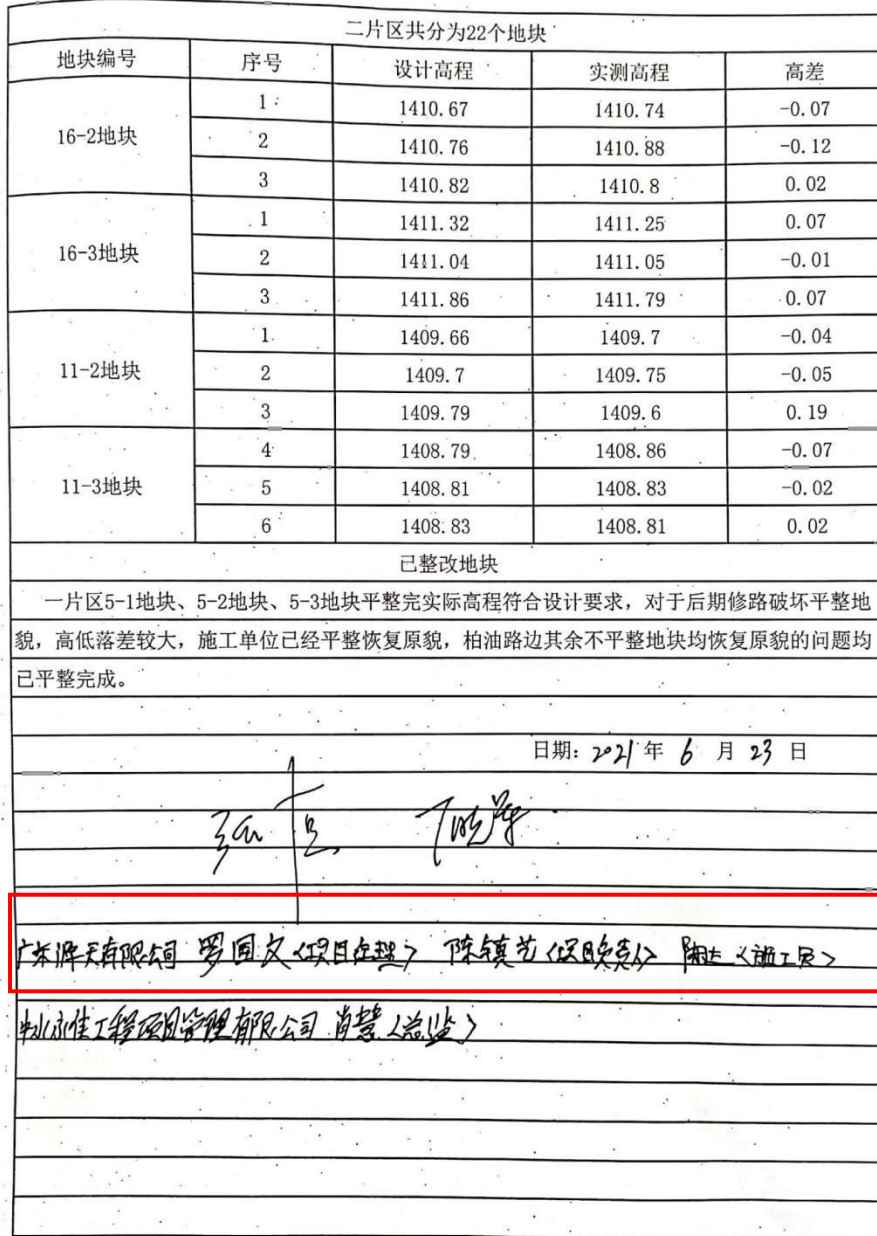 二片区共分为22个地块
地块编号 序号 设计高程 实测高程 高差
16-2地块
1 1410.67 1410.74 -0.07
2 1410.76 1410.88 -0.12
3 1410.82 1410.8 0.02
16-3地块
1 1411.32 1411.25 0.07
2 1411.04 1411.05 -0.01
3 1411.86 1411.79 0.07
11-2地块
1 1409.66 1409.7 -0.04
2 1409.7 1409.75 -0.05
3 1409.79 1409.6 0.19
11-3地块
4 1408.79 1408.86 -0.07
5 1408.81 1408.83 -0.02
6 1408.83 1408.81 0.02
已整改地块
一片区5-1地块、5-2地块、5-3地块平整完实际高程符合设计要求，对于后期修路破坏平整地
貌，高低落差较大，施工单位已经平整恢复原貌，柏油路边其余不平整地块均恢复原貌的问题均
已平整完成。
日期：2021年 6 月 23 日
广东源天有限公司 罗国文（项目经理） 陈镇艺（项目负责人） （施工员）
永佳工程项目管理有限公司 肖慧（总监）